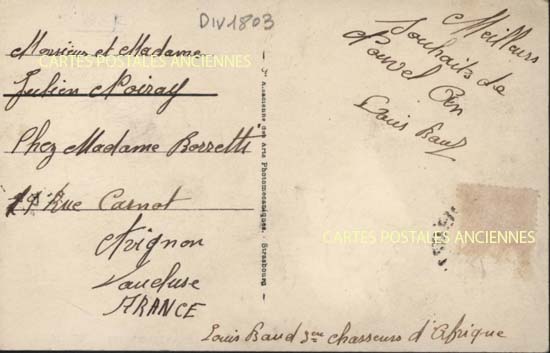 DIV1803
Monsieur et Madame
CARTES POSTALES ANCIENNES
Julien Noiray
Chez Madame Borretti
19 Rue Carnot
Avignon
Vaucluse
FRANCE
Meilleurs
Souhaits de
Nouvel An
Louis Baud
Alsacienne des Arts Photomécaniques, Strasbourg
CARTES POSTALES ANCIENNES
Louis Baud 3me chasseurs d'Afrique